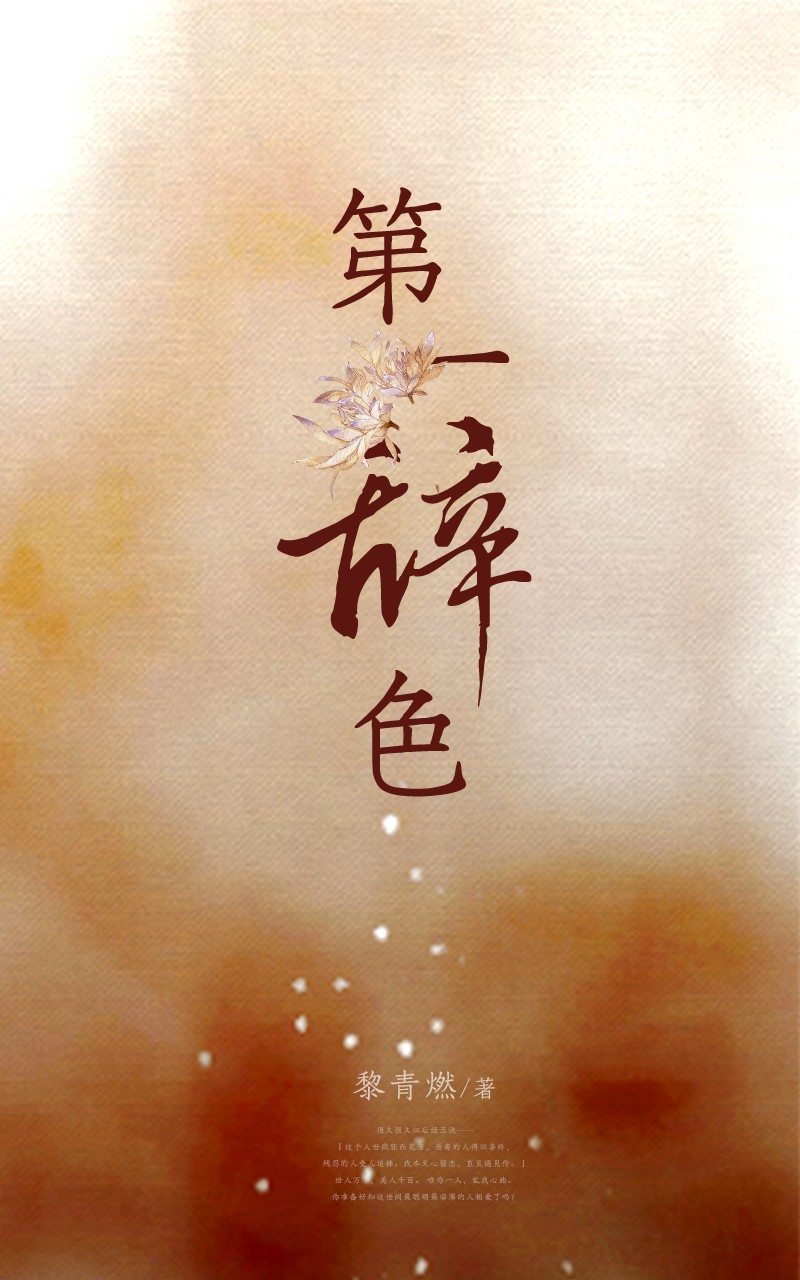 第一辞色
黎青燃/著
很久很久以后姬玉说——
「这个人世疯狂而荒唐，恶毒的人得以善终，
残忍的人受人追捧。我本无心留恋，直至遇见你。」
世人万千，美人千百。唯你一人，乱我心曲。
你准备好和这世间最聪明最凉薄的人相爱了吗？